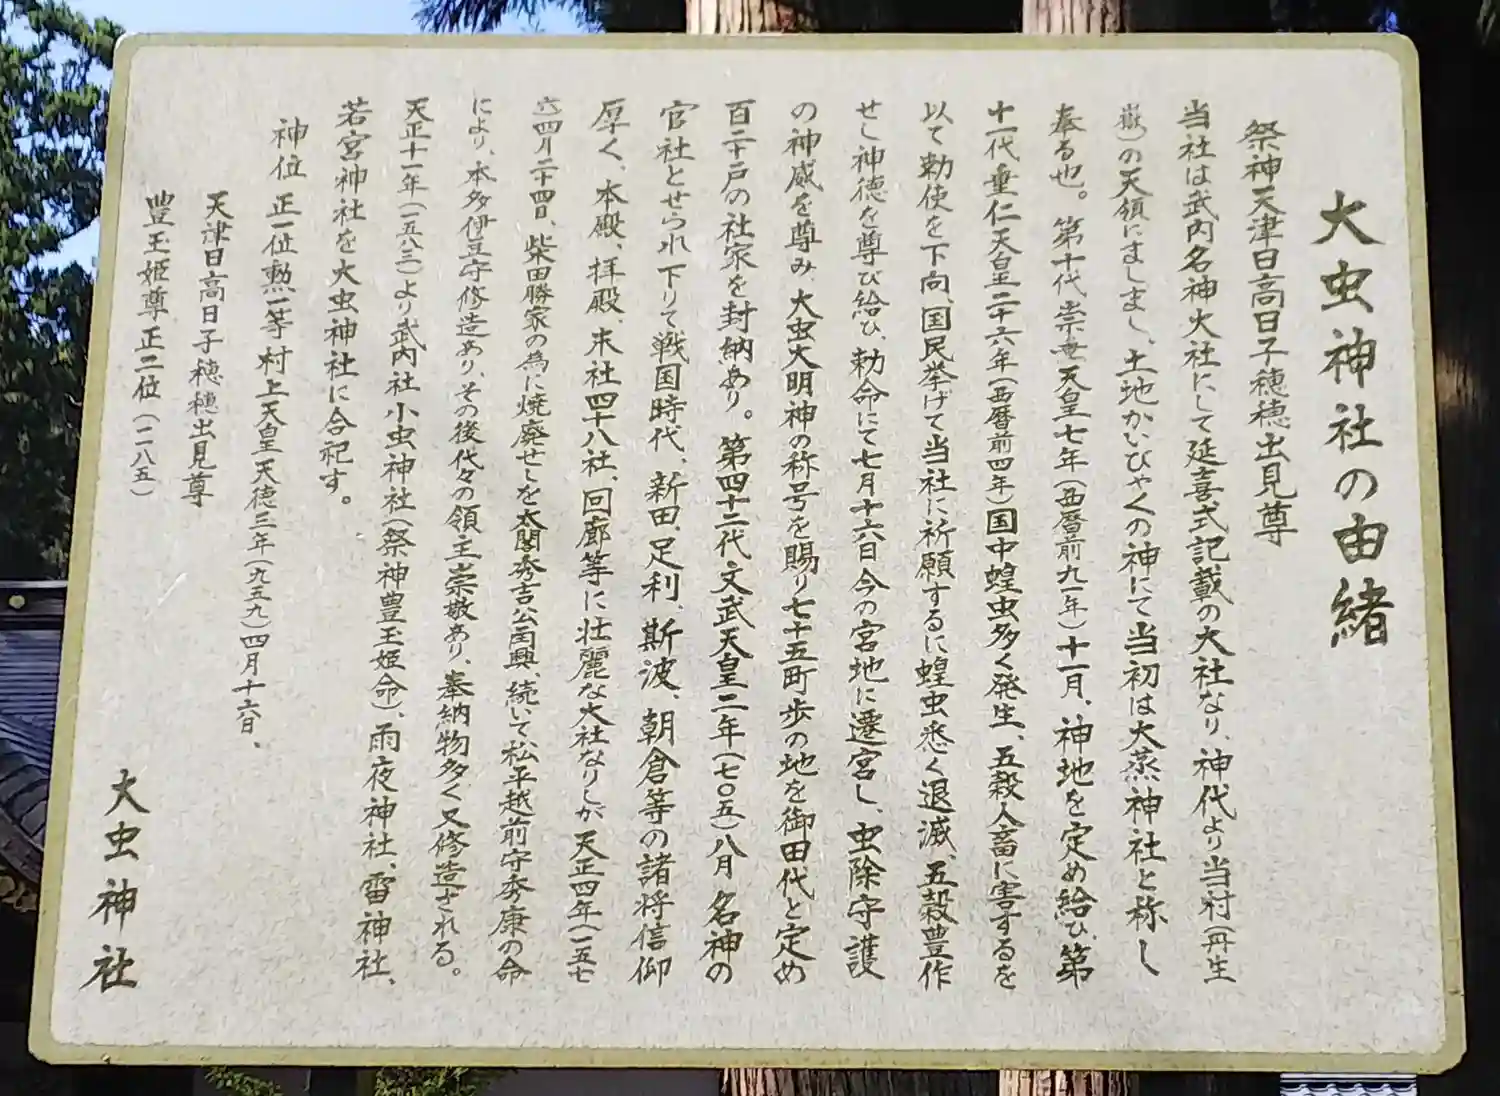 大虫神社の由緒
祭神天津日高日子穂穂出見尊
当社は武内名神大社にして延喜式記載の大社なり、神代より当村(丹生
嶽)の天領にましまし、土地かいひやくの神にて当初は大蒸神社と称し
奉る也。第十代崇神天皇七年(西暦前九一年)十一月、神地を定め給ひ、第
十一代垂仁天皇二十六年(西暦前四年)国中蝗虫多く発生、五穀人畜に害するを
以て勅使を下向、国民挙げて当社に祈願するに蝗虫悉く退滅、五穀豊作
せし神徳を尊び給ひ、勅命にて七月十六日今の宮地に遷宮し、虫除守護
の神威を尊み、大虫大明神の称号を賜り七十五町歩の地を御田代と定め
百二十戸の社家を封納あり。第四十二代文武天皇二年(七〇五)八月名神の
官社とせられ下りて戦国時代、新田、足利、斯波、朝倉等の諸将信仰
厚く、本殿、拝殿、末社四十八社、回廊等に壮麗な大社なりしが天正四年(一五七
六)四月二十四日、柴田勝家の為に焼廃せしを太閤秀吉公再興、続いて松平越前守秀康の命
により、本多伊豆守修造あり、その後代々の領主崇敬あり、奉納物多く又修造される。
天正十一年(一五八三)より武内社小虫神社(祭神豊玉姫命)、雨夜神社、雷神社、
若宮神社を大虫神社に合祀す。
神位 正一位勲一等村上天皇天徳三年(九五九)四月十六日、
天津日高日子穂穂出見尊
豊玉姫尊正二位(一二八五)
大虫神社